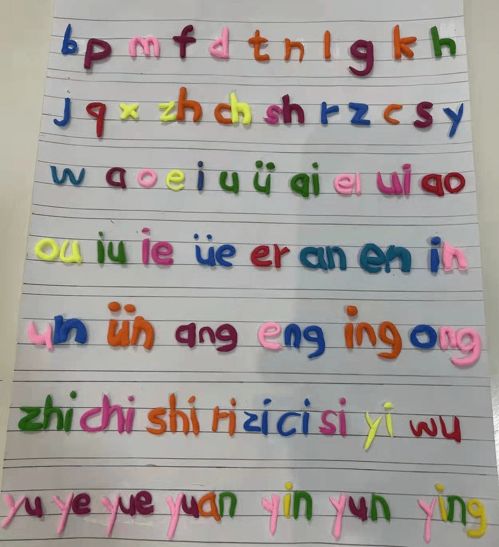 b p m f d t n l g k h
j q x zh ch sh r z c s y
w a o e i u ü ai ei ui ao
ou iu ie üe er an en in
un ün ang eng ing ong
zhi chi shi ri zi ci si yi wu
yu ye yue yuan yin yun ying